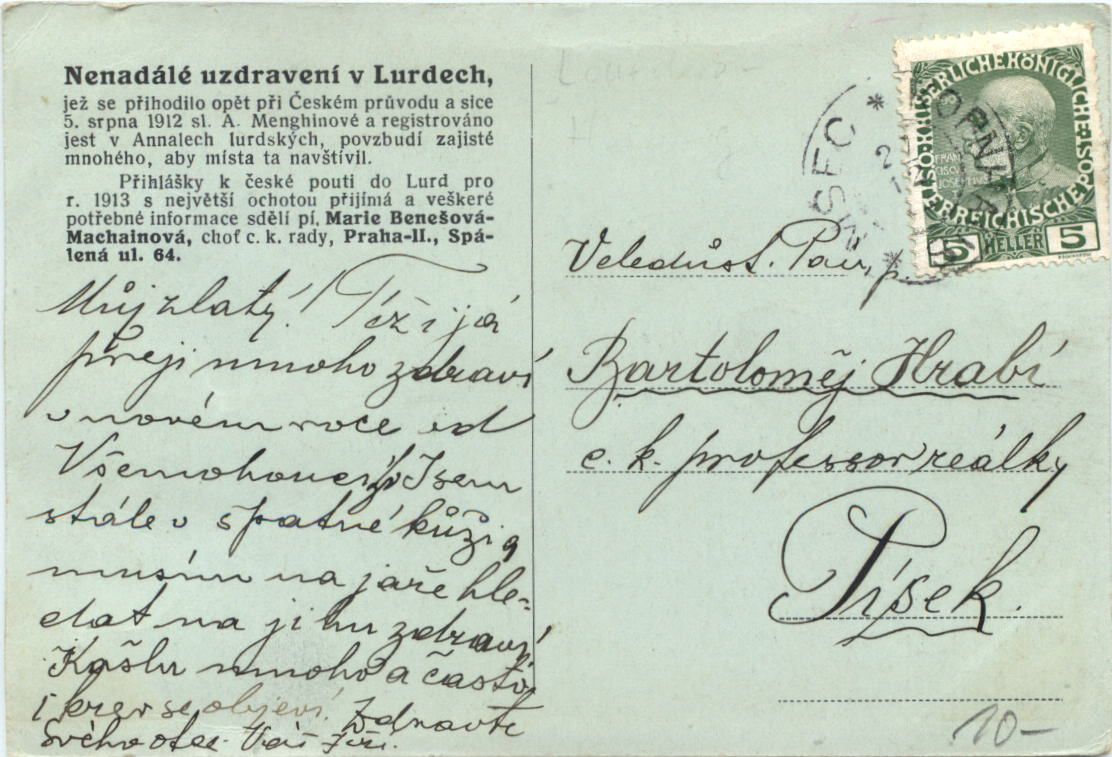 Nenadálé uzdravení v Lurdech,
jež se přihodilo opět při Českém průvodu a sice
5. srpna 1912 sl. A. Menghinové a registrováno
jest v Annalech lurdských, povzbudí zajisté
mnohého, aby místa ta navštívil.
Přihlášky k české pouti do Lurd pro
r. 1913 s největší ochotou přijímá a veškeré
potřebné informace sdělí pí. Marie Benešová-
Machainová, choť c. k. rady, Praha-II., Spá-
lená ul. 64.
Můj zlatý! Též i já
přeji mnoho zdraví
v novém roce od
Všemohoucího Jsem
stále v špatné kůži a
musím na jaře hle-
dat na jihu zdraví
Kašlu mnoho a často
i krev se objeví. Zdravte
Svého otce. Váš Jiří.
KAISERLICHE KÖNIGLICHE
ÖSTERREICHISCHE POST
FRAN
CISCVS
JOSEPHVS
5 HELLER 5
Veledůst. Pan, p.
Bartoloměj Hrabí
c. k. professor reálky
Písek.
10-